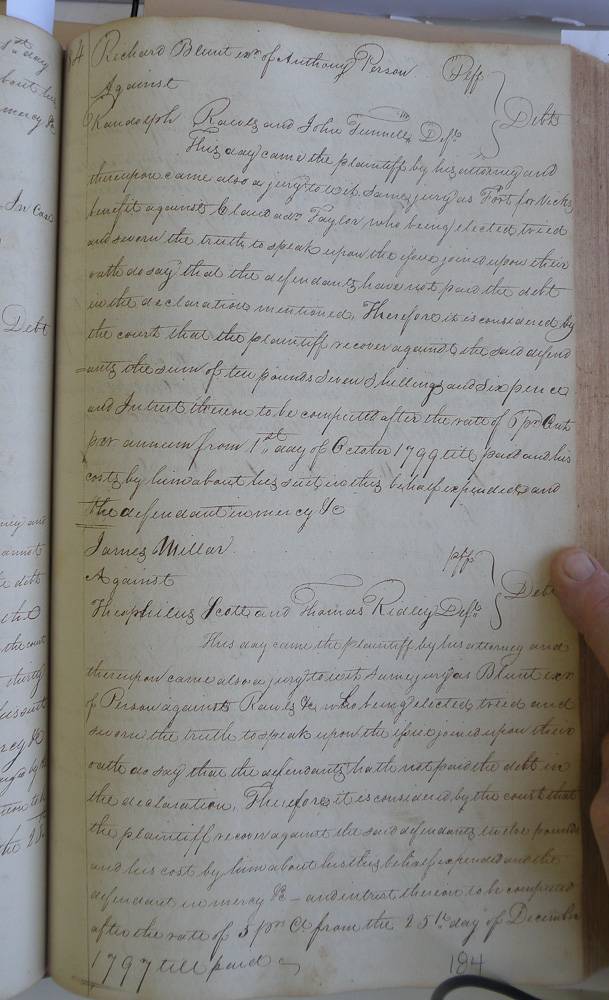 Richard Blunt exr of Anthony Person Plff
Against
Debt
Randolph Rawls and John Tunnell Defts
This day came the plaintiff by his attorney and
thereupon came also a jury to wit. Same jury as Fort for Vicks
benefit against Claud adr Taylor who being elected tried
and sworn the truth to speak upon the issue joined upon their
oath do say that the defendants have not paid the debt
in the declaration mentioned, Therefore it is considered by
the court that the plaintiff recover against the said defend
=ants the sum of ten pounds seven shillings and six pence
and Intrest thereon to be computed after the rate of 6 pr Cent
per annum from 1st day of October 1799 till paid and his
costs by him about his suit in this behalf expended and
the defendant in mercy &c
James Millar plff
Against
Debt
Theophilus Scott and Thomas Ridley Defts
This day came the plaintiff by his attorney and
thereupon came also a jury to wit Same jury as Blunt exr
of Person against Rawls &c who being elected tried and
sworn the truth to speak upon the issue joined upon their
oath do say that the defendants hath not paid the debt in
the declaration, Therefore it is considered by the court that
the plaintiff recover against the said defendants twelve pounds
and his cost by him about his this behalf expended and the
defendant in mercy &c - and intrest thereon to be computed
after the rate of 5 pr Ct from the 25th day of December
1797 till paid
184